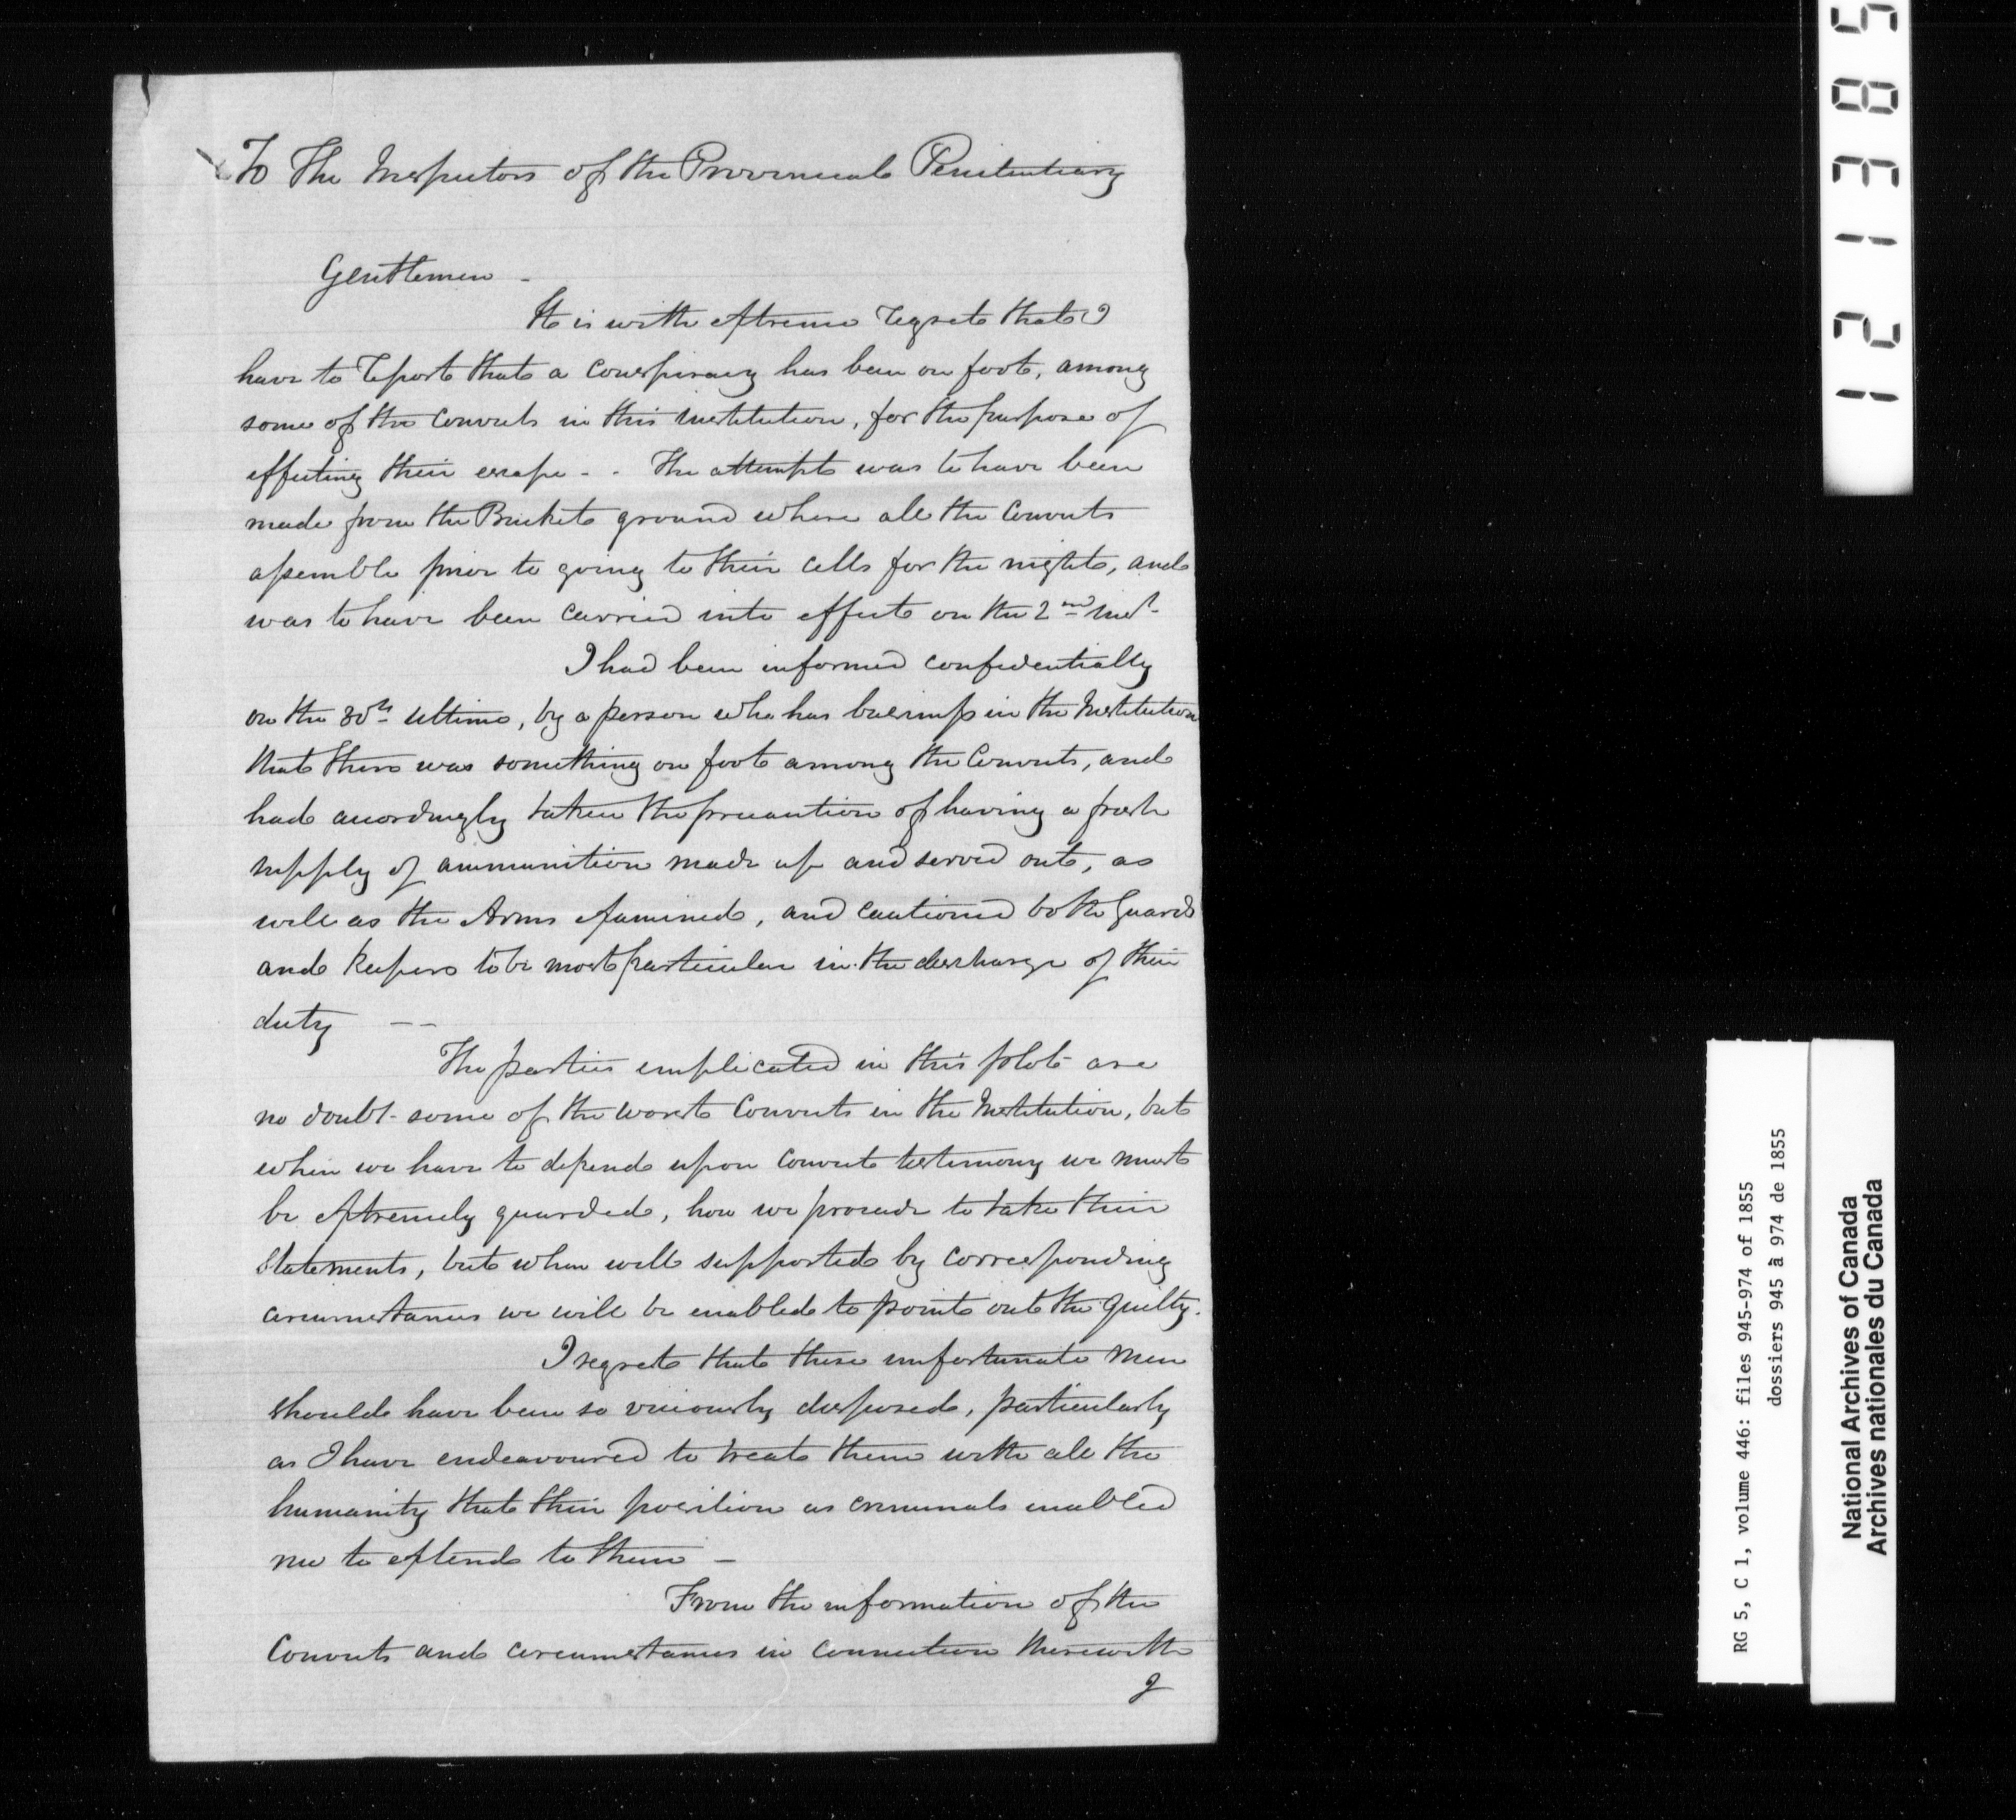 To The Inspectors of the Provincial Penitentiary
Gentlemen -
It is with extreme regret that I
have to report that a conspiracy has been on foot, among
some of the convicts in this institution, for the purpose of
effecting their escape - - The attempt was to have been
made from the Bucket ground where all the Convicts
assemble prior to going to their cells for the night, and
was to have been carried into effect on the 2nd inst.
I had been informed confidentially
on the 30th ultimo, by a person who has business in the Institution
that there was something on foot among the Convicts, and
had accordingly taken the precaution of having a fresh
supply of ammunition made up and served out, as
well as the Arms examined, and cautioned both Guards
and Keepers to be most particular in the discharge of their
duty - -
The parties implicated in this plot are
no doubt some of the worst Convicts in the Institution, but
when we have to depend upon convict testimony we must
be extremely guarded, how we proceed to take their
statements, but when well supported by corresponding
circumstances we will be enabled to point out the guilty.
I regret that these unfortunate men
should have been so viciously disposed, particularly
as I have endeavoured to treat them with all the
humanity that their position as criminals enabled
me to extend to them -
From the information of the
Convicts and circumstances in connection therewith
I
121385
RG 5, C 1, volume 446: files 945-974 of 1855
dossiers 945 à 974 de 1855
National Archives of Canada
Archives nationales du Canada